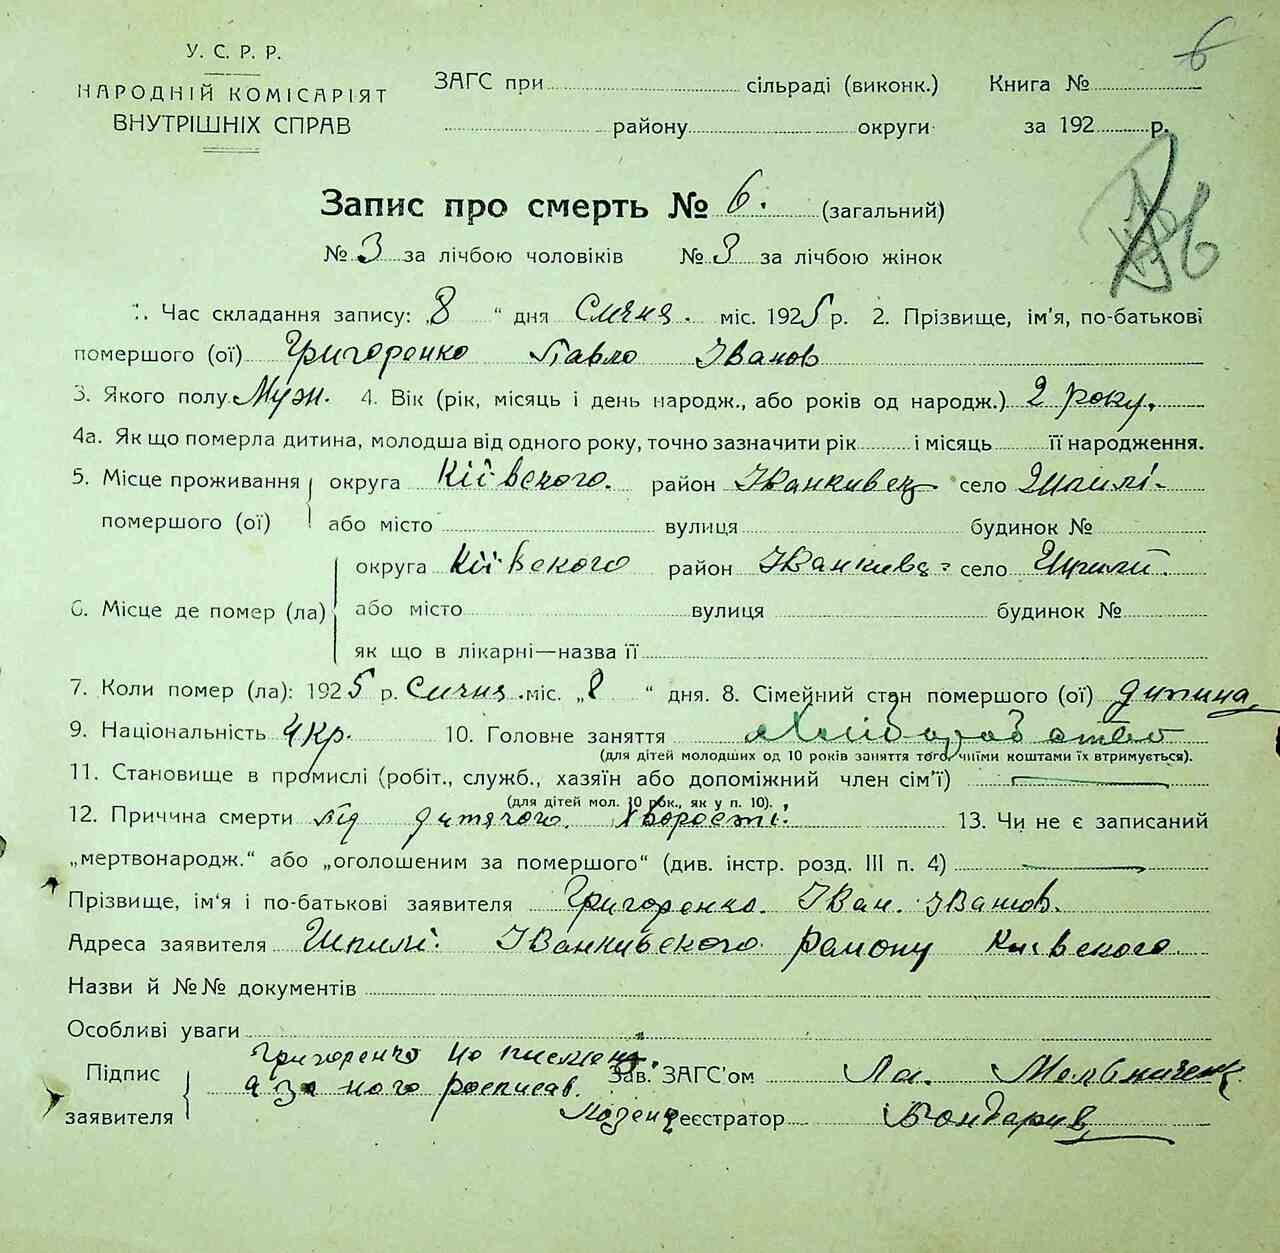 6
У. С. Р. Р.
НАРОДНІЙ КОМІСАРІЯТ
ВНУТРІШНІХ СПРАВ
ЗАГС при сільраді (виконк.) Книга №
району округи за 192 р.
Запис про смерть № 6. (загальний)
№ 3 за лічбою чоловіків № 3 за лічбою жінок
1. Час складання запису: „8 “ дня Січня. міс. 1925 р. 2. Прізвище, ім'я, по-батькові
помершого (ої) Григоренко Павло Іванов
3. Якого полу Муж. 4. Вік (рік, місяць і день народж., або років од народж.) 2 року.
4а. Як що померла дитина, молодша від одного року, точно зазначити рік і місяць її народження.
5. Місце проживання округа Київского. район Іванкивец село Шпилі
помершого (ої) або місто вулиця будинок №
округа Київского район Іванкивс село Шпили
6. Місце де помер (ла) або місто вулиця будинок №
як що в лікарні—назва її
7. Коли помер (ла): 1925 р. Січня. міс. „8 “ дня. 8. Сімейний стан помершого (ої) дитина
9. Національність Укр. 10. Головне заняття Хлібороб ство
(для дітей молодших од 10 років заняття того, чиїми коштами їх втримується).
11. Становище в промислі (робіт., служб., хазяїн або допоміжний член сім'ї)
(для дітей мол. 10 рок., як у п. 10).
12. Причина смерти від дитячого. хворости. 13. Чи не є записаний
„мертвонародж.“ або „оголошеним за помершого“ (див. інстр. розд. III п. 4)
Прізвище, ім'я і по-батькові заявителя Григоренко. Іван. Іванов.
Адреса заявителя Шпилі. Іванкивского району Киевского
Назви й №№ документів
Особливі уваги
Григоренко не письмен.
Підпис а за него росписав. Зав. ЗАГС'ом Мельниченк
заявителя реєстратор Бондарив